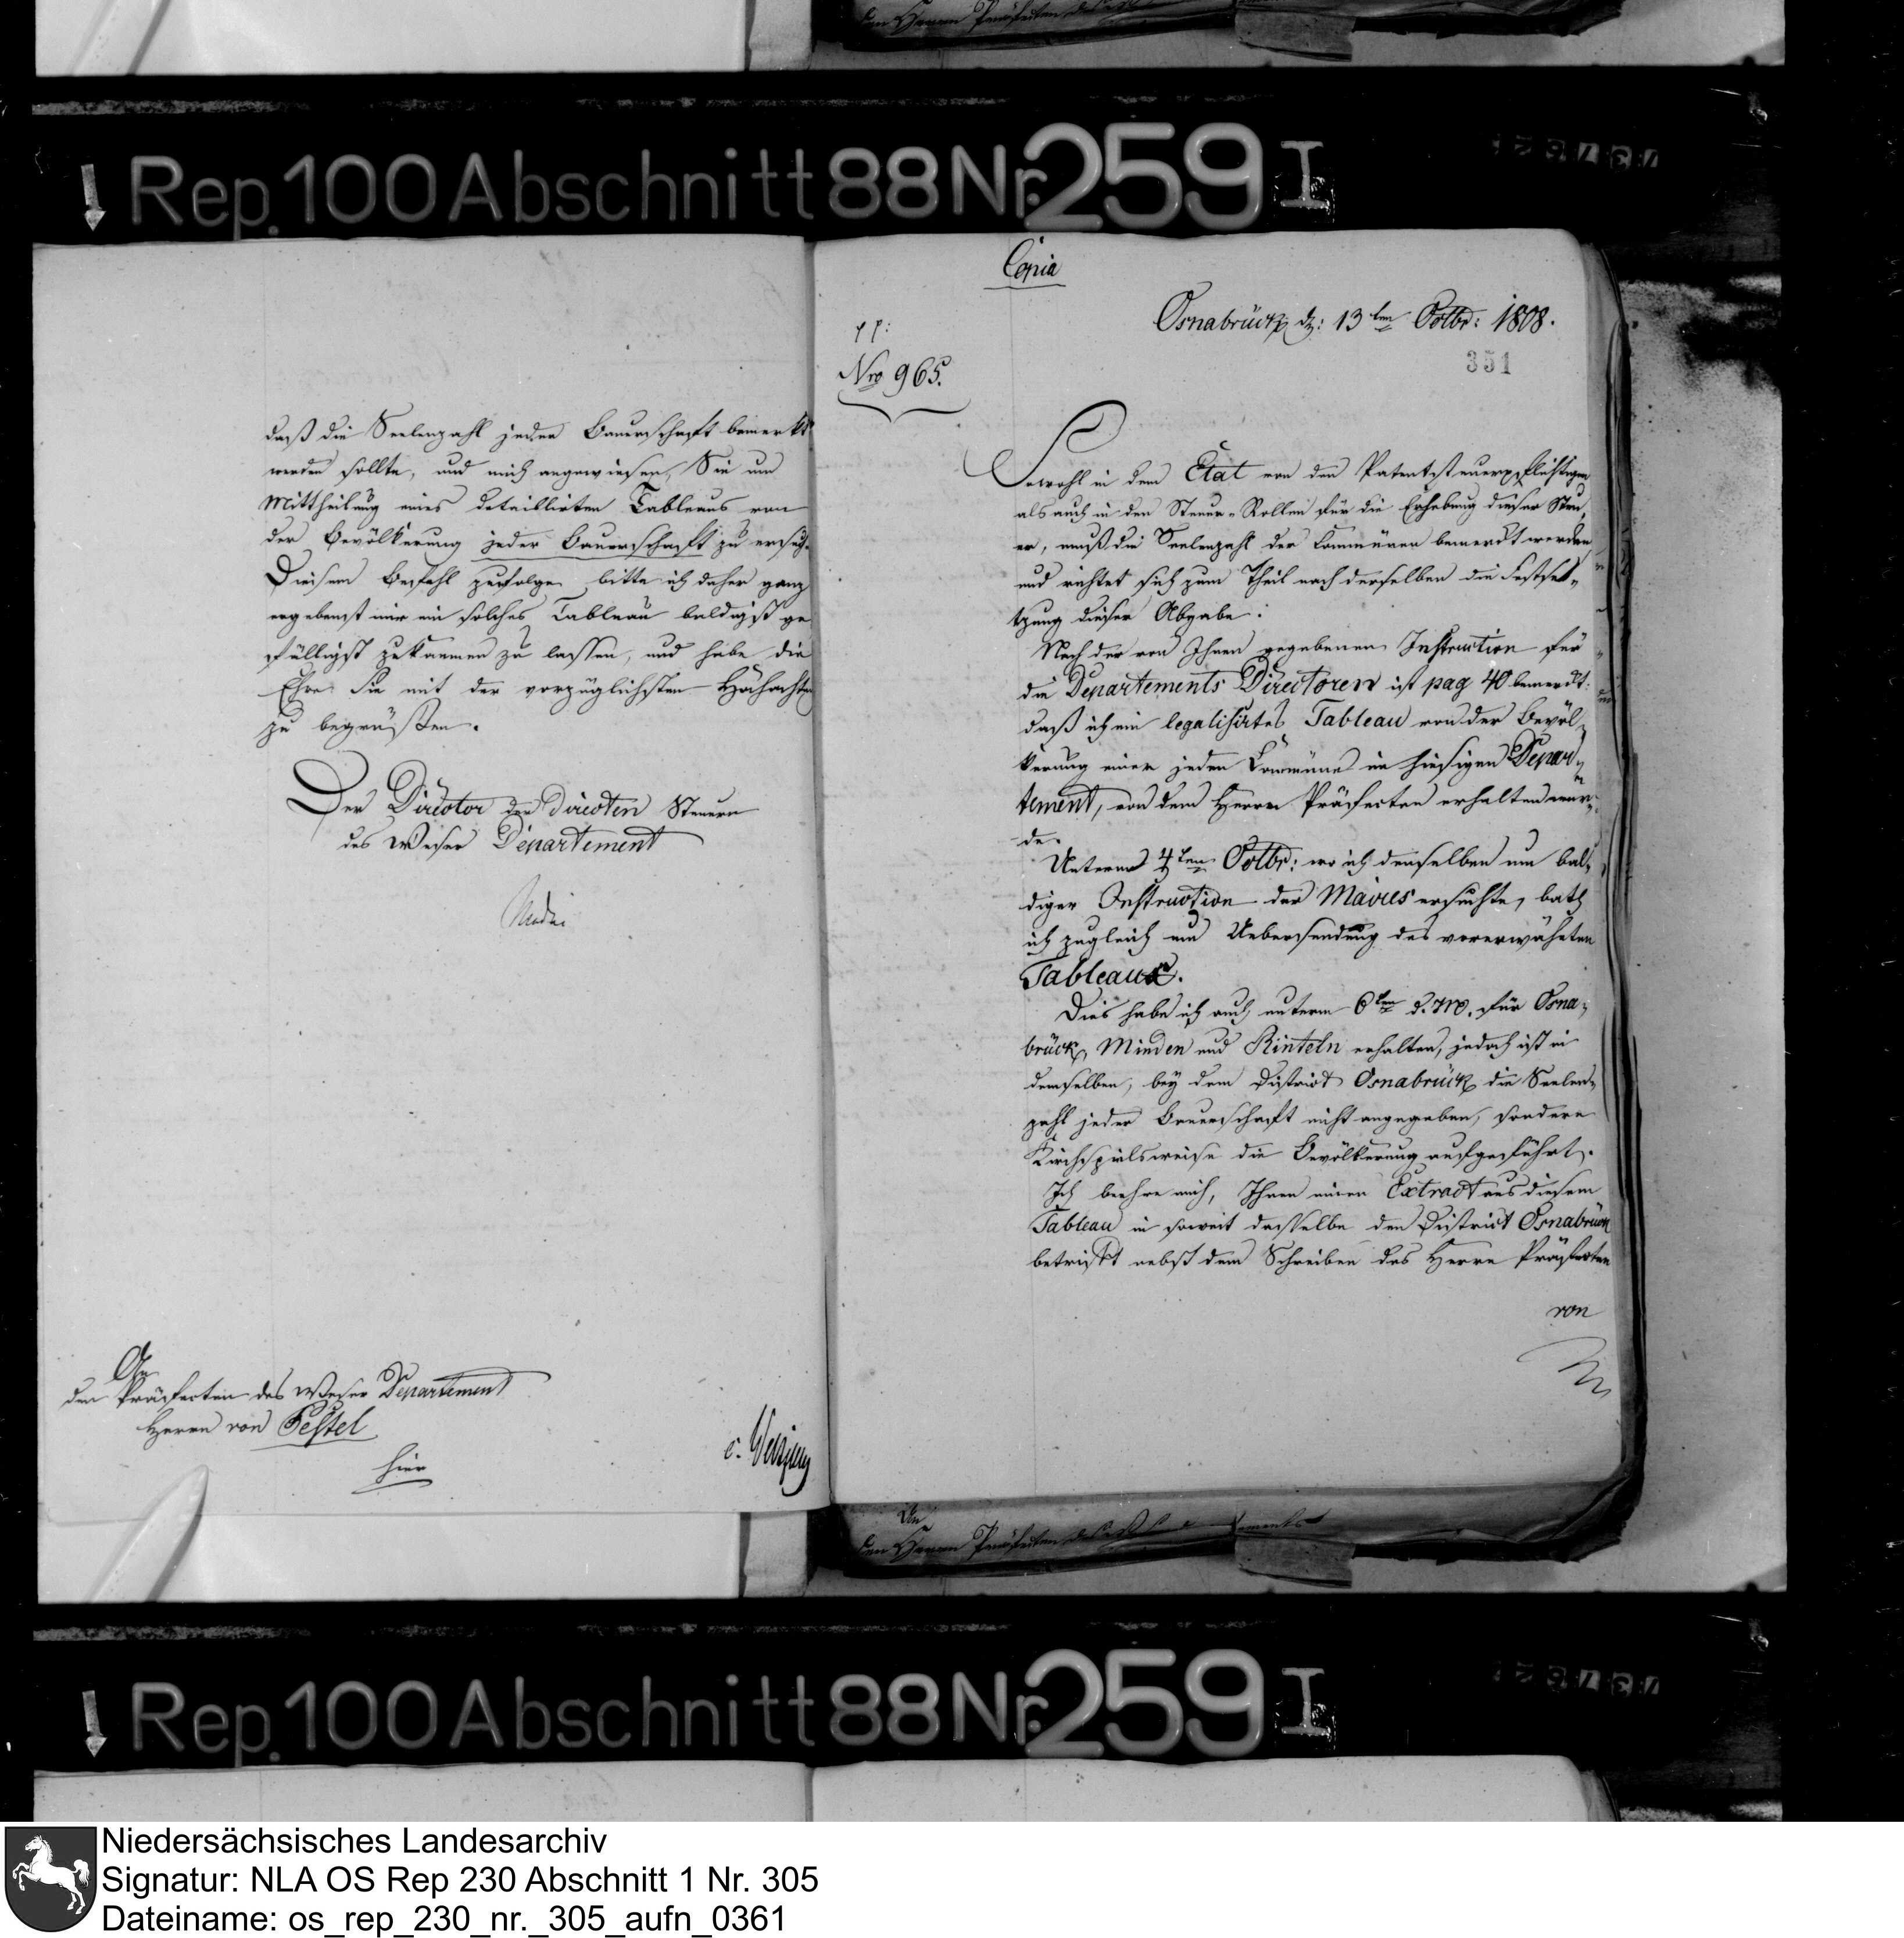 Rep. 100 Abschnitt 88 Nr. 259 I
daß die Seelenzahl jeder Bauerschaft bemerkt
werden sollte, und mich angewiesen, Sie um
Mittheilung eines detaillirten Tableaus von
der Bevölkerung jeder Bauerschaft zu ersuch.
Diesem Befehl zufolge bitte ich daher ganz
ergebenst mir ein solches Tableau baldigst ge
fälligst zukommen zu lassen, und habe die
Ehre Sie mit der vorzüglichsten Hochacht
zu begrüßen.
Der Director der directen Steuern
des Weser Departement
An
den Präfecten des Weser Departement
Herrn von Pestel
hier
Copia
Osnabrück d: 13ten Octbr: 1808.
351
pp:
Nro 965.
Sowohl in dem Etat von den Patentsteuerpflichtigen
als auch in den Steuer-Rollen für die Erhebung dieser Steu,
er, muß die Seelenzahl der Communen bemerckt werden
und richtet sich zum Theil nach derselben die Festset,
tzung dieser Abgabe.
Nach der von Ihnen gegebenen Instruction für
die Departements Directoren ist pag 40 bemerckt:
daß ich ein legalisirtes Tableau von der Bevöl,
kerung einer jeden Commüne im hiesigen Depar,
tement, von dem Herrn Präfecten erhalten wür,
de.
Unterm 4ten Octbr: wo ich denselben um bal,
diger Instruction der Maires ersuchte, bath
ich zugleich um Uebersendung des vorerwähnten
Tableaus.
Dies habe ich auch unterm 6ten d. M. für Osna,
brück, Minden und Rinteln erhalten, jedoch ist in
demselben, bey dem District Osnabrück die Seelen,
zahl jeder Bauerschaft nicht angegeben, sondern
Kirchspielsweise die Bevölkerung aufgeführt.
Ich beehre mich, Ihnen einen Extract aus diesem
Tableau in soweit dasselbe den District Osnabrück
betrifft nebst dem Schreiben des Herrn Präfecten
von
An
den Herrn Präfecten des
Rep. 100 Abschnitt 88 Nr. 259 I
Niedersächsisches Landesarchiv
Signatur: NLA OS Rep 230 Abschnitt 1 Nr. 305
Dateiname: os_rep_230_nr._305_aufn_0361